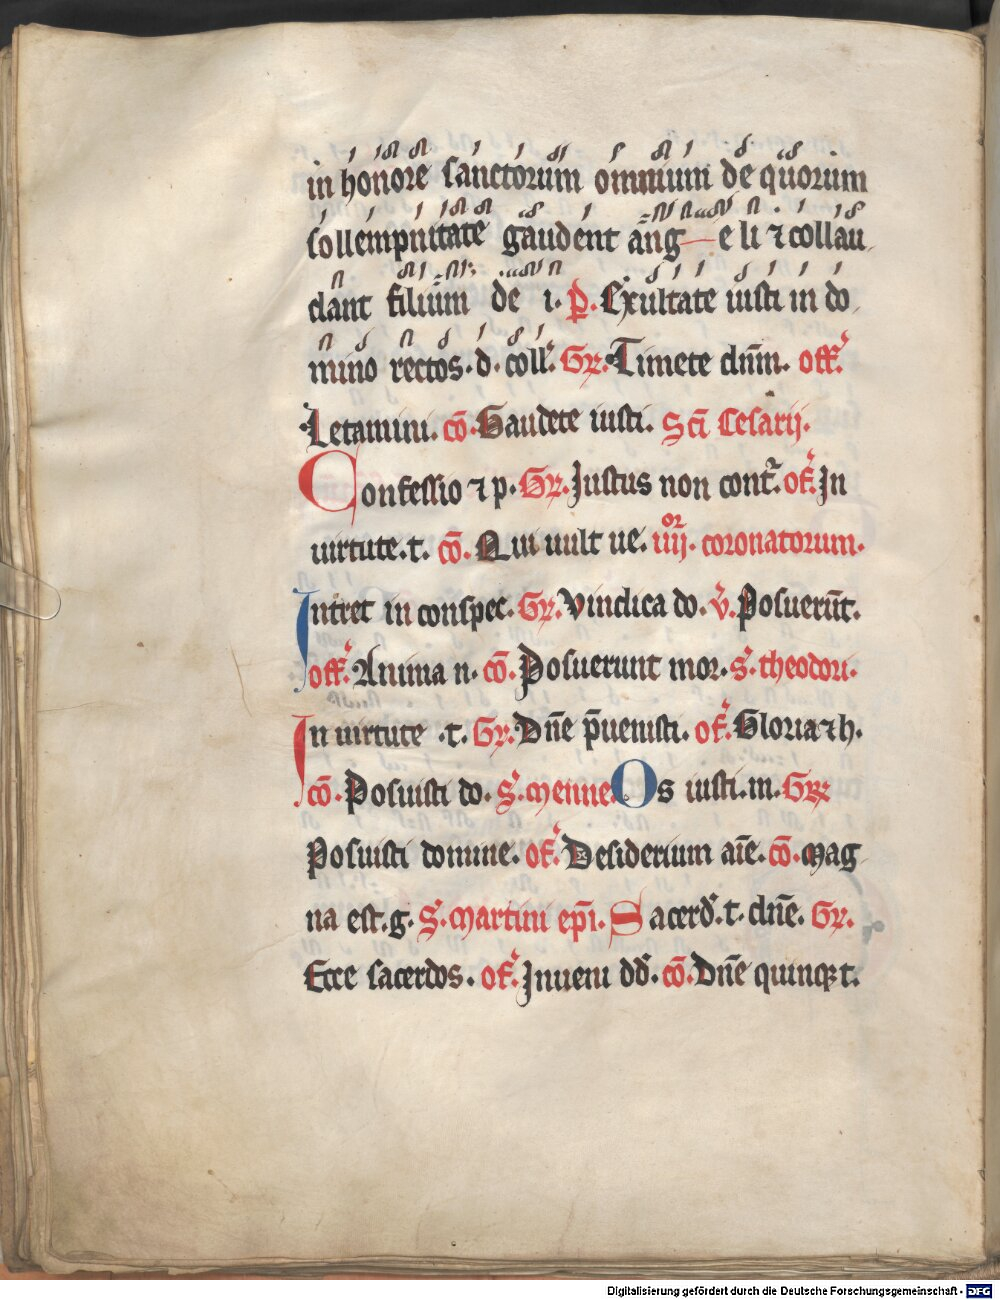 in honore sanctorum omnium de quorum
sollempnitate gaudent ang e li ⁊ collau
dant filium de i. p̄. Exultate iusti in do
mino rectos. d. coll. Gr. Timete dn̄m. off.
Letamini. cō. Gaudete iusti. Sc̄i Cesarij.
Confessio ⁊ p. Gr. Justus non cont. of. In
uirtute. t. cō. Qui uult ue. iiijor. coronatorum.
Intret in conspec. Gr. Vindica do. v̄. Posuerūt.
off. Anima n. cō. Posuerunt mor. s. theodori.
In uirtute .t. Gr. Dn̄e p̄uenisti. of. Gloria ⁊ h.
cō. Posuisti do. S. Menne. Os iusti. m. Gr
Posuisti domine. of. Desiderium aīe. cō. Mag
na est. g. S. Martini ep̄i. Sacerd. t. dn̄e. Gr.
Ecce sacerdos. of. Inueni dd. cō. Dn̄e quinqz t.
Digitalisierung gefördert durch die Deutsche Forschungsgemeinschaft - DFG